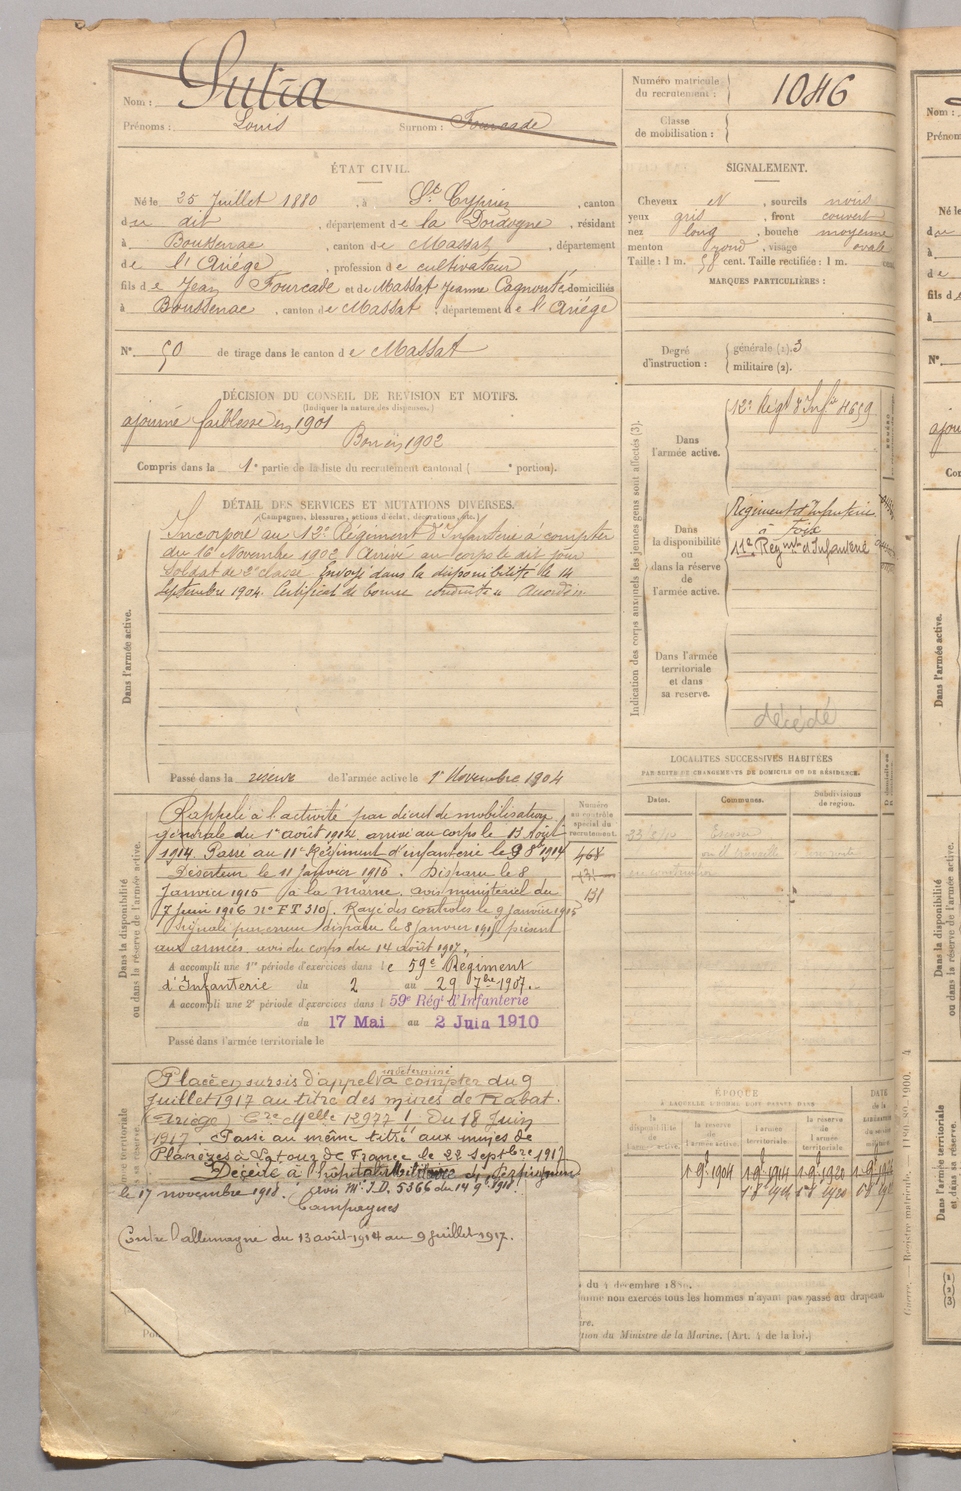 Nom : Sutra
Prénoms : Louis Surnom : Fourcade
Numéro matricule du recrutement : 1046
Classe de mobilisation :
ÉTAT CIVIL.
Né le 25 Juillet 1880, à St Cyprien, canton
du dit, département de la Dordogne, résidant
à Boussenac, canton de Massat, département
de l'Ariége, profession de cultivateur
fils de Jean Fourcade et de Massat Jeanne Cagnouté, domiciliés
à Boussenac, canton de Massat, département de l'Ariége
N° 50 de tirage dans le canton de Massat
SIGNALEMENT.
Cheveux et, sourcils noirs
yeux gris, front couvert
nez long, bouche moyenne
menton rond, visage ovale
Taille : 1 m. 58 cent. Taille rectifiée : 1 m. cent.
MARQUES PARTICULIÈRES :
Degré d'instruction : générale (1). 3
militaire (2).
DÉCISION DU CONSEIL DE REVISION ET MOTIFS.
(Indiquer la nature des dispenses.)
ajourné faiblesse en 1901
Bon en 1902
Compris dans la 1e partie de la liste du recrutement cantonal ( e portion).
DÉTAIL DES SERVICES ET MUTATIONS DIVERSES.
(Campagnes, blessures, actions d'éclat, décorations, etc.)
Dans l'armée active.
Incorporé au 12e Régiment d'Infanterie à compter
du 16 Novembre 1902 Arrivé au corps le dit jour
Soldat de 2e classe Envoyé dans la disponibilité le 14
Septembre 1904. Certificat de bonne conduite « Accordé »
Passé dans la réserve de l'armée active le 1er Novembre 1904
Indication des corps auxquels les jeunes gens sont affectés (3).
Dans l'armée active.
12e Régt d'Infie 4659
Dans la disponibilité ou dans la réserve de l'armée active.
Régiment d'Infanterie
à Foix
11e Régiment d'Infanterie
Dans l'armée territoriale et dans sa reserve.
décédé
LOCALITÉS SUCCESSIVES HABITÉES
PAR SUITE DE CHANGEMENTS DE DOMICILE OU DE RÉSIDENCE.
Dates. Communes. Subdivisions de region.
Dans la disponibilité ou dans la réserve de l'armée active.
Rappelé à l'activité par décret de mobilisation
générale du 1er août 1914, arrivé au corps le 13 Août
1914. Passé au 11e Régiment d'infanterie le 9 8bre 1914
Déserteur le 11 Janvier 1915. Disparu le 8
Janvier 1915 à la Marne. avis ministériel du
7 Juin 1916 n° FT 3105. Rayé des controles le 9 Janvier 1915
Signalé par erreur disparu le 8 Janvier 1915 présent
aux armées. avis du corps du 14 août 1917.
A accompli une 1re période d'exercices dans le 59e Régiment
d'Infanterie du 2 au 29 7bre 1907.
A accompli une 2e période d'exercices dans l 59e Régt d'Infanterie
du 17 Mai au 2 Juin 1910
Passé dans l'armée territoriale le
Numéro au contrôle spécial du recrutement.
468
131
131
Placé en sursis d'appel indéterminé à compter du 9
Juillet 1917 au titre des mines de Rabat.
Ariège Cre Melle 12977 ! Du 18 Juin
1917. Passé au même titre aux mines de
Planèzes à Latour de France le 22 Septbre 1917
Décédé à l'hôpital Militaire de Perpignan
le 17 novembre 1918. avis Mel I.D. 5366 du 14 9bre 1918.
Campagnes
Contre l'allemagne du 13 août 1914 au 9 juillet 1917.
ÉPOQUE
À LAQUELLE L'HOMME DOIT PASSER DANS
la disponibilité de l'armée active. la réserve de l'armée active. l'armée territoriale. la réserve de l'armée territoriale.
1 9bre 1904
du 4 décembre 18
omme non exercés tous les hommes n'ayant pas passé au drapeau
tion du Ministre de la Marine. (Art. 4 de la loi.)